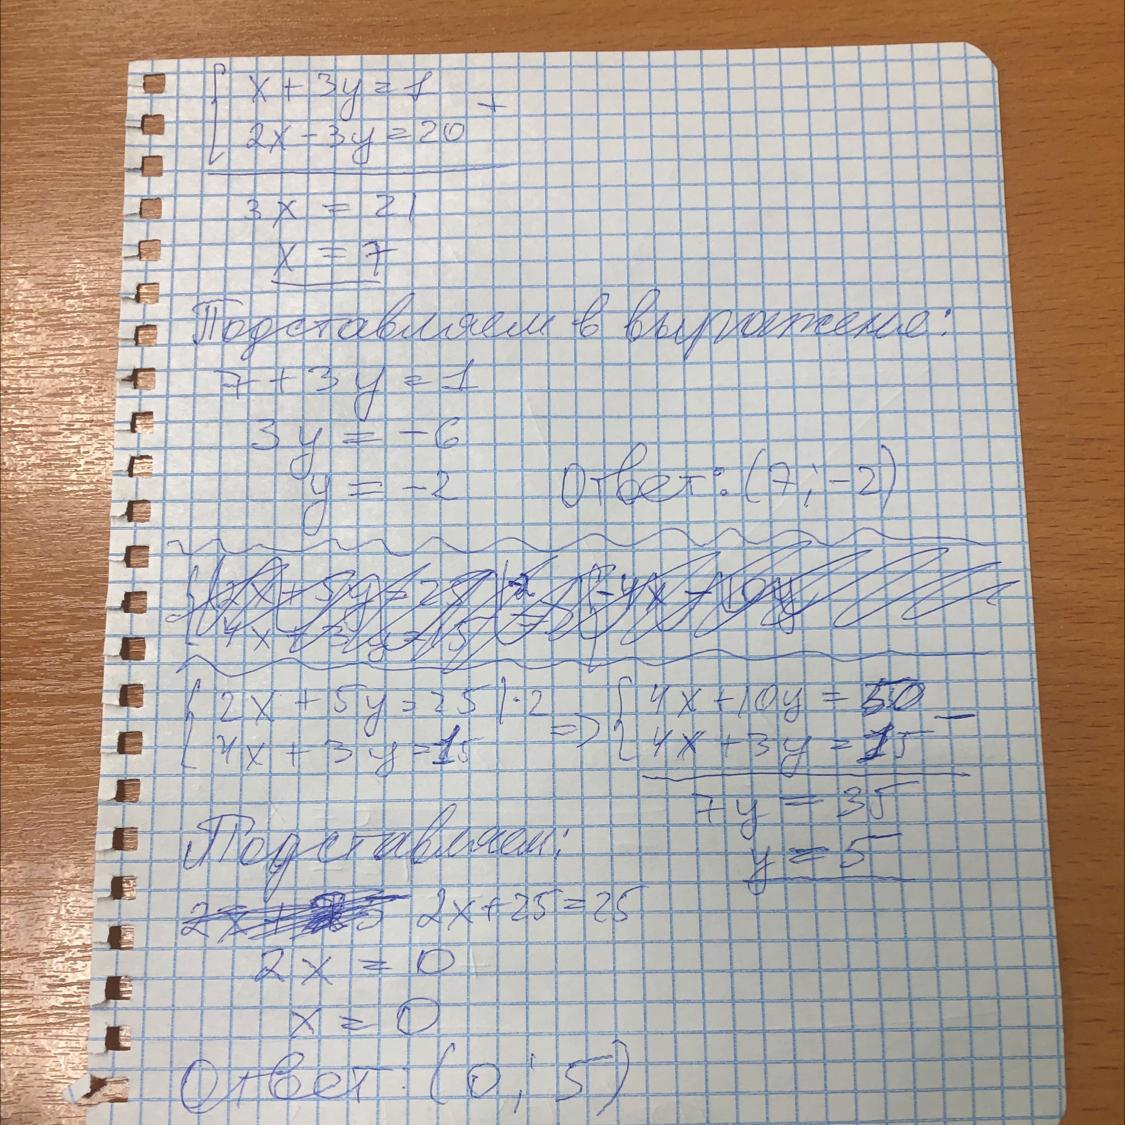 { x + 3y = 1
2x - 3y = 20 +
3x = 21
x = 7
Подставляем в выражение:
7 + 3y = 1
3y = -6
y = -2 Ответ: (7; -2)
{ 2x + 5y = 25 | ·2 => { 4x + 10y = 50 -
4x + 3y = 15 4x + 3y = 15
7y = 35
Подставляем: y = 5
2x + 25 = 25
2x = 0
x = 0
Ответ: (0; 5)